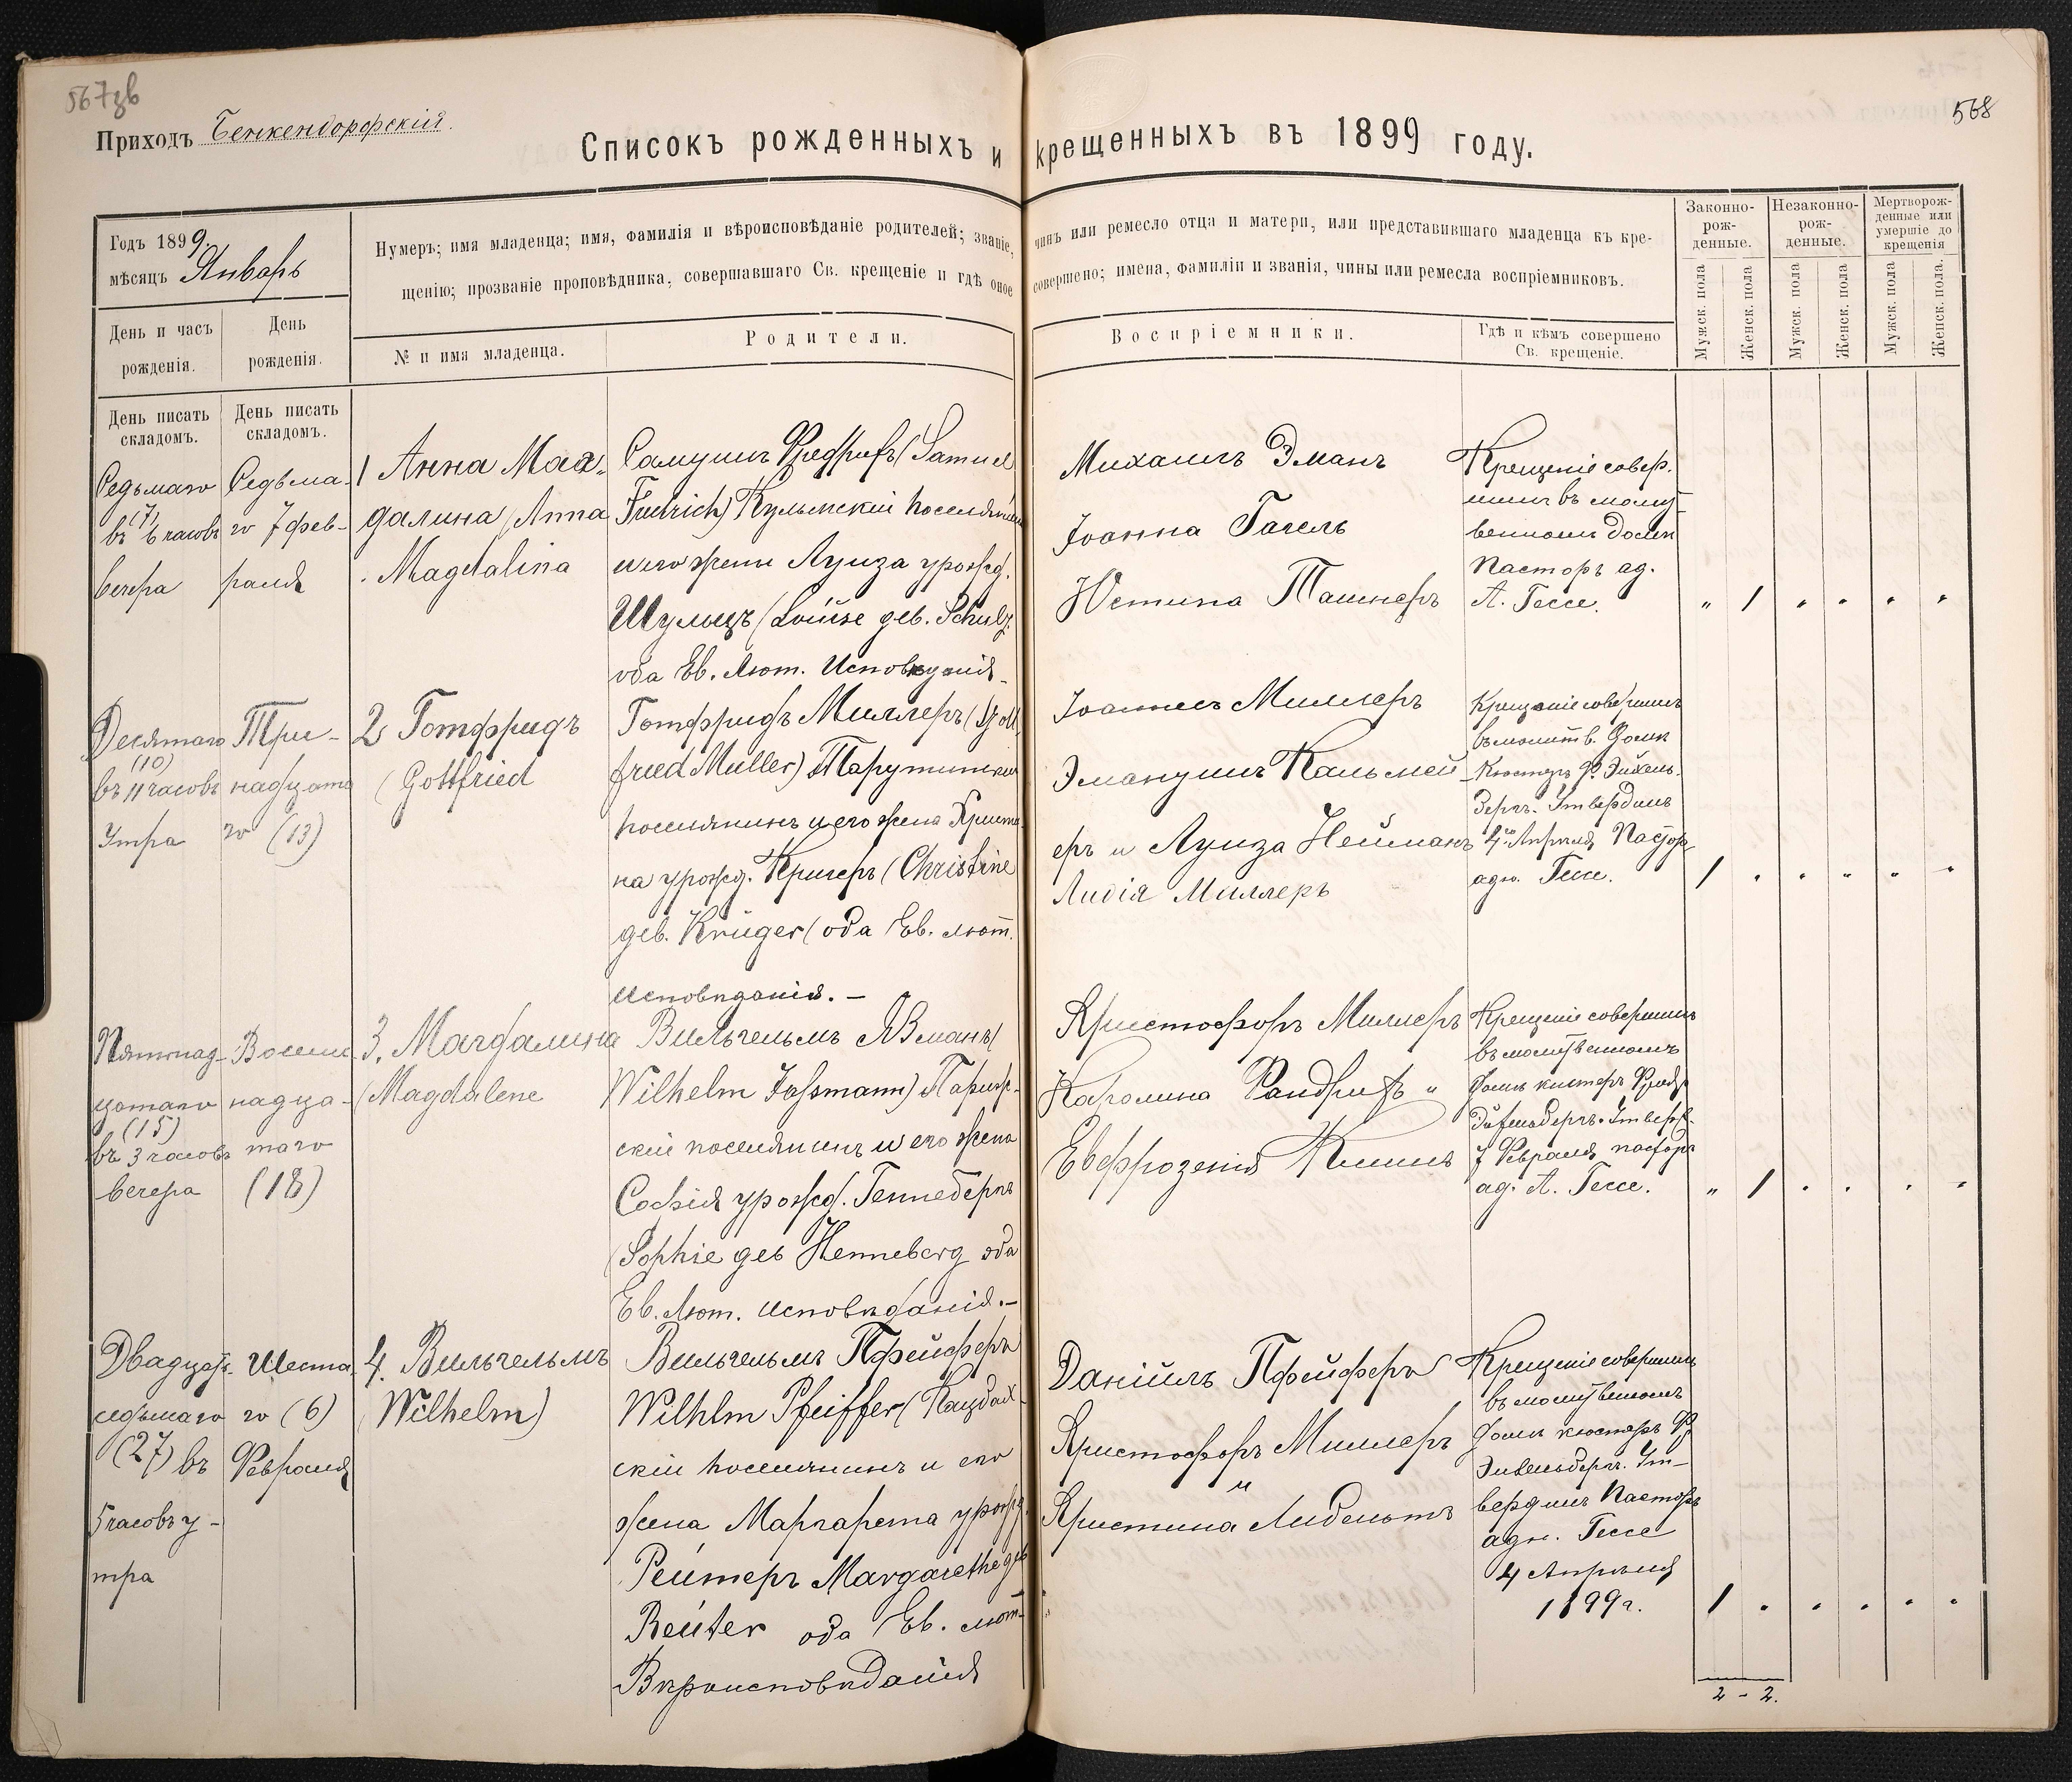 567зв
568
Приходъ Бенкендорфскій.
Списокъ рожденныхъ и крещенныхъ въ 1899 году.
Годъ 1899.
мѣсяцъ Январь
Нумеръ; имя младенца; имя, фамилія и вѣроисповѣданіе родителей; званіе, чинъ или ремесло отца и матери, или представившаго младенца къ кре-
щенію; прозваніе проповѣдника, совершавшаго Св. крещеніе и гдѣ оное совершено; имена, фамиліи и званія, чины или ремесла воспріемниковъ.
Законно-
рож-
денные.
Незаконно-
рож-
денные.
Мертворож-
денные или
умершіе до
крещенія
Мужск. пола
Женск. пола
Мужск. пола
Женск. пола
Мужск. пола
Женск. пола.
День и часъ
рожденія.
День
рожденія.
№ и имя младенца.
Родители.
Воспріемники.
Гдѣ и кѣмъ совершено
Св. крещеніе.
День писать
складомъ.
День писать
складомъ.
Седьмаго
(7)
въ 6 часовъ
вечера
Седьма-
го 7 фев-
раля
1 Анна Маг-
далина (Anna
Magdalina
Самуилъ Фредрихъ (Samuel
Fridrich) Кульмскій поселянинъ
и его жена Луиза урожд.
Шульцъ (Louise geb. Schulz.
оба Ев. Лют. Исповѣданія.
Михаилъ Эманъ
Іоанна Гагель
Юстина Ташнеръ
Крещеніе совер.
шилъ въ молит-
венномъ домѣ
Пасторъ ад.
А. Гессе.
" 1 . . . .
Десятаго
(10)
въ 11 часовъ
Утра
Три-
надцата
го (13)
2 Готфридъ
(Gottfried
Готфридъ Миллеръ (Gott
fried Müller) Тарутинскій
поселянинъ и его жена Кристи
на урожд. Кригеръ (Christine
geb. Krüger (оба Ев. лют.
Исповѣданія. -
Іоаннесъ Миллеръ
Эмануилъ Кальмей-
еръ и Луиза Нейманъ
Лидія Миллеръ
Крещеніе совершилъ
въ молитв. домѣ
Кюстеръ Ф. Эйхель-
бергъ. Утвердилъ
4го Апрѣля Пасторъ
адн. Гессе.
1 . . " . .
Пятнад-
цатаго
(15)
въ 3 часовъ
вечера
Восем-
надца-
таго
(18)
3. Магдалина
(Magdalene
Вильгельмъ Язманъ (
Wilhelm Jassmann) Париж-
скій поселянинъ и его жена
Софія урожд. Геннебергъ
(Sophie geb Henneberg оба
Ев. Лют. исповѣданія. -
Христофоръ Миллеръ
Каролина Фандрихъ "
Ефрозенія Климъ
Крещеніе совершилъ
въ молитвенномъ
домѣ кистеръ Фридр.
7 Февраля пасторъ
ад. А. Гессе.
" 1 . . . .
Двадцать-
седьмаго
(27) въ
5 часовъ у-
тра
Шеста-
го (6)
Февраля
4. Вильгельмъ
(Wilhelm)
Вильгельмъ Пфейферъ
Wilhlm Pfeiffer (Кацбах-
скій поселянинъ и его
жена Маргарета урожд.
Рейтеръ Margarethe geb
Reuter оба Ев. лют-
Вѣроисповѣданія
Даніилъ Пфейферъ
Христофоръ Миллеръ
и
Христина Лидельтъ
Крещеніе совершилъ
въ молитвенномъ
домѣ кюстеръ Ф.
Эйхельбергъ. Ут-
вердилъ Пасторъ
адн. Гессе
4 Апрѣля
1899г.
1 . . . . .
2 - 2.